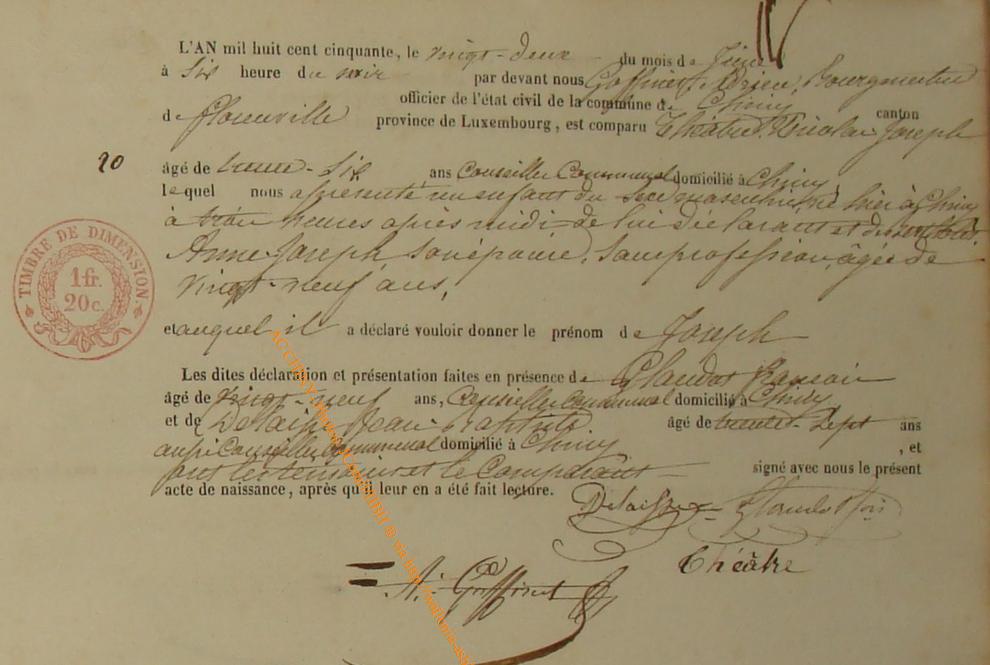 L'AN mil huit cent cinquante, le vingt-deux du mois de
à six heure du soir par devant nous Goffinet Adrien, Bourgmestre
officier de l'état civil de la commune de Chiny canton
de Florenville province de Luxembourg, est comparu Théâtre Nicolas Joseph
20 âgé de trente-six ans Conseiller Communal domicilié à Chiny,
lequel nous a présenté un enfant du sexe masculin, né hier à Chiny
à trois heures après midi de lui déclarant et de
Anne-Joseph son épouse, sans profession, âgée de
vingt-neuf ans,
TIMBRE DE DIMENSION.
1 fr.
20 c.
et auquel il a déclaré vouloir donner le prénom de Joseph
Les dites déclaration et présentation faites en présence de Glaudot François
âgé de vingt-neuf ans, Conseiller Communal domicilié à Chiny
et de Jean Baptiste âgé de trente-sept ans
aussi Conseiller Communal domicilié à Chiny, et
ont les témoins et le Comparant signé avec nous le présent
acte de naissance, après qu'il leur en a été fait lecture.
Théâtre
A. Goffinet